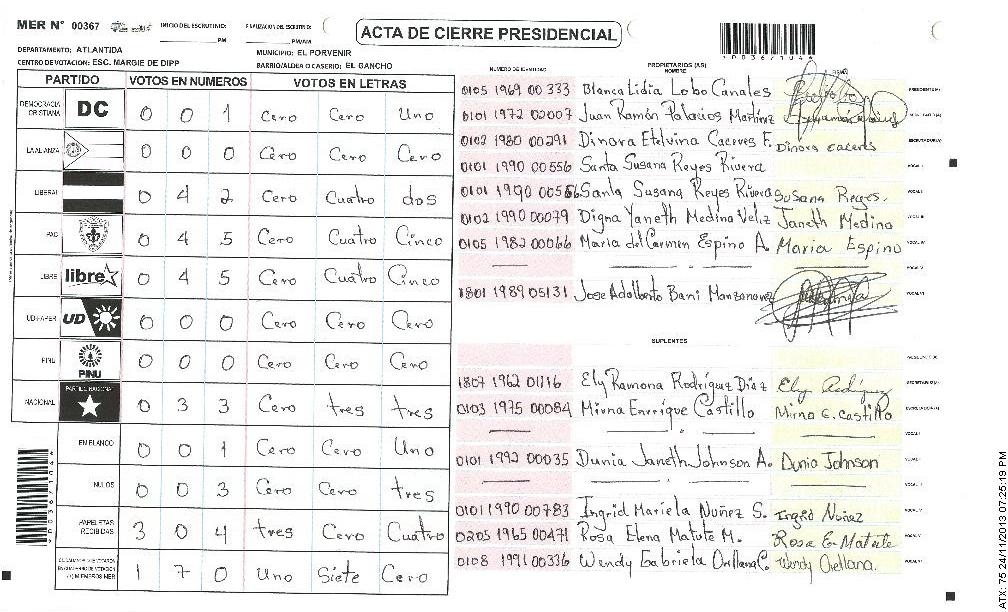 MER N° 00367
INICIO DEL ESCRUTINIO:
PM
FINALIZACION DEL ESCRUTINIO:
PM/AM
ACTA DE CIERRE PRESIDENCIAL
DEPARTAMENTO: ATLANTIDA
MUNICIPIO: EL PORVENIR
CENTRO DE VOTACION: ESC. MARGIE DE DIPP
BARRIO/ALDEA O CASERIO: EL GANCHO
PARTIDO VOTOS EN NUMEROS VOTOS EN LETRAS
DEMOCRACIA CRISTIANA DC 0 0 1 Cero Cero Uno
LA ALIANZA 0 0 0 Cero Cero Cero
LIBERAL 0 4 2 Cero Cuatro dos
PAC 0 4 5 Cero Cuatro Cinco
LIBRE libre 0 4 5 Cero Cuatro Cinco
UD-FAPER UD 0 0 0 Cero Cero Cero
PINU PINU 0 0 0 Cero Cero Cero
NACIONAL PARTIDO NACIONAL 0 3 3 Cero tres tres
EN BLANCO 0 0 1 Cero Cero Uno
NULOS 0 0 3 Cero Cero tres
PAPELETAS RECIBIDAS 3 0 4 tres Cero Cuatro
1 7 0 Uno Siete Cero
NUMERO DE IDENTIDAD PROPIETARIOS (AS) NOMBRE FIRMA
0105 1969 00333 Blanca Lidia Lobo Canales
0101 1972 02007 Juan Ramón Palacios Martínez
0102 1980 00291 Dinora Etelvina Caceres F. Dinora caceres
0101 1990 00556 Santa Susana Reyes Rivera
0101 1990 00556 Santa Susana Reyes Rivera Susana Reyes.
0102 1990 00079 Digna Yaneth Medina Veliz Janeth Medina
0105 1982 00066 Maria del Carmen Espino A. Maria Espino
1801 1989 05131 Jose Adalberto Bani Manzanarez
SUPLENTES
1807 1962 01116 Ely Ramona Rodríguez Díaz Ely Rodríguez
0103 1975 00084 Mirna Enrrique Castillo Mirna E. castillo
0101 1992 00035 Dunia Janeth Johnson A. Dunia Johnson
0101 1990 00783 Ingrid Mariela Nuñez S. Ingrid Nuñez
0205 1965 00471 Rosa Elena Matute M. Rosa E. Matute
0108 1991 00336 Wendy Gabriela Orellana C. Wendy Orellana.
ATX: 75 24/11/2013 07:25:19 PM